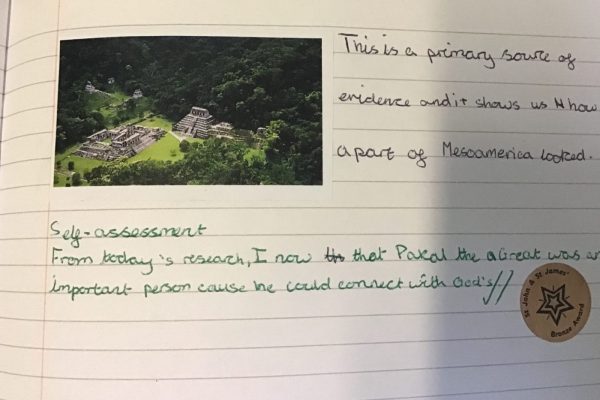 This is a primary source of
evidence and it shows us how
a part of Mesoamerica looked.
Self-assessment
From today's research, I now that Pakal the Great was an
important person cause he could connect with God's//
St John & St James'
Bronze Award